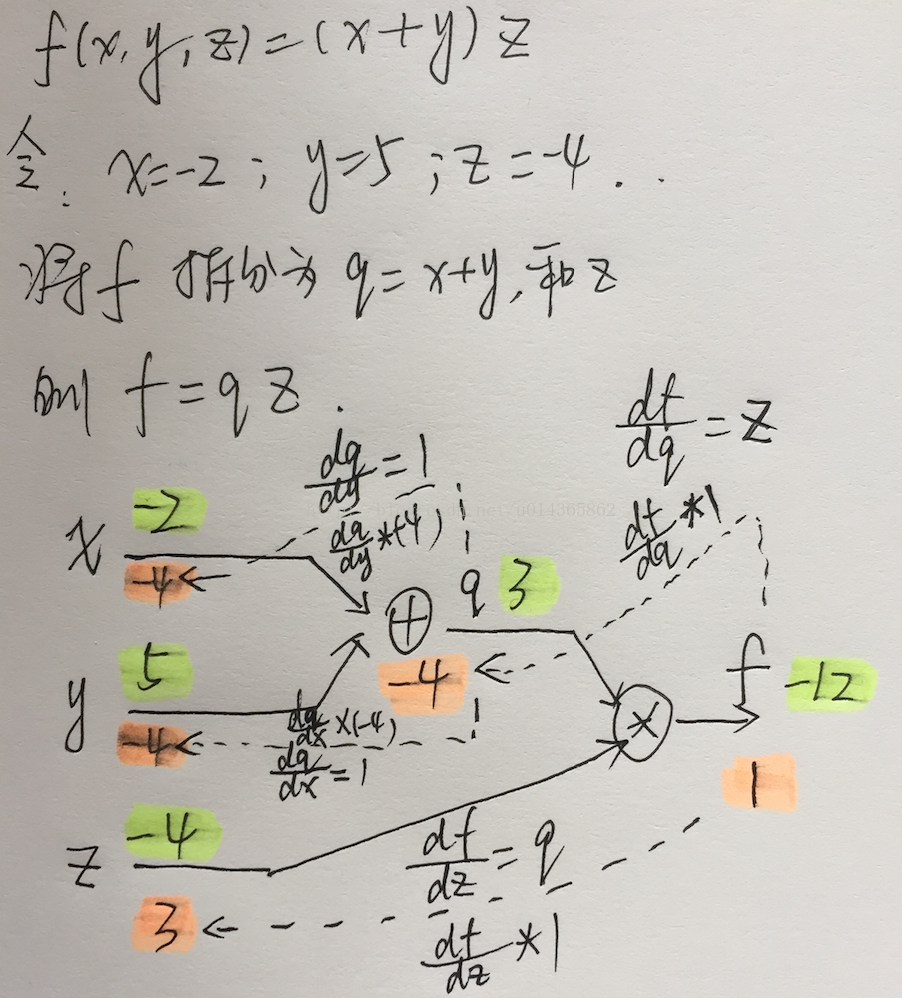 f(x,y,z)=(x+y)z
令: x=-2; y=5; z=-4...
将f 拆分为 q=x+y,和z
则 f=qz.
df/dq=z
dq/dy=1
-2
dq/dy*(-4)
df/dq*1
x
-4
q 3
5
-4
f -12
y
dq/dx×(-4)
-4
dq/dx=1
1
-4
z
df/dz=q
3
df/dz*1